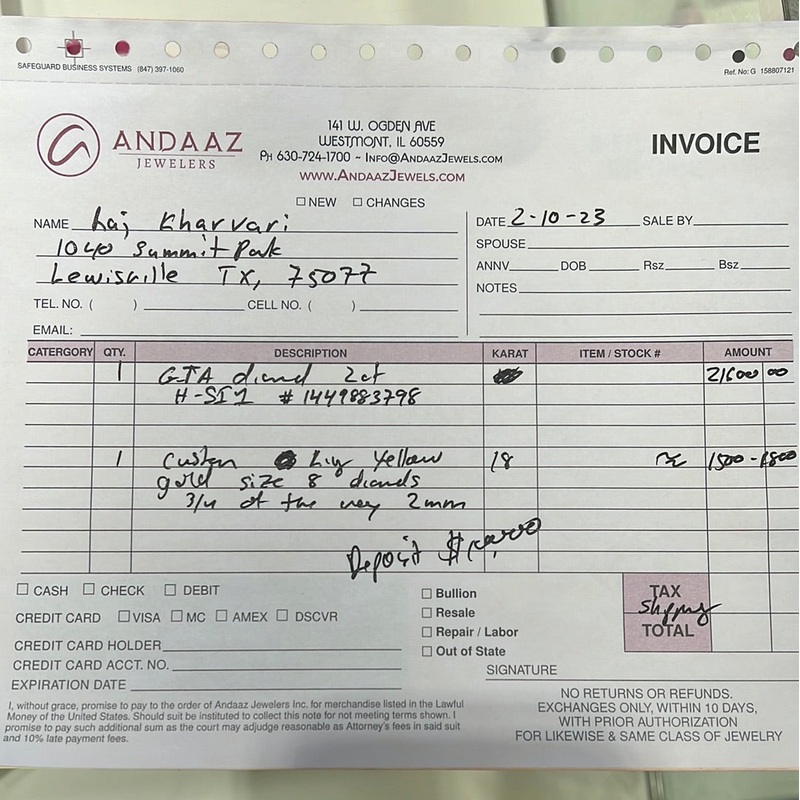 SAFEGUARD BUSINESS SYSTEMS (847) 397-1060
Ref. No: G 158807121
ANDAAZ
JEWELERS
141 W. OGDEN AVE
WESTMONT, IL 60559
PH 630-724-1700 ~ INFO@ANDAAZJEWELS.COM
WWW.ANDAAZJEWELS.COM
INVOICE
NEW CHANGES
NAME Raj Kharvari
1040 Summit Park
Lewisville TX, 75077
TEL. NO. ( ) CELL NO. ( )
EMAIL:
DATE 2-10-23 SALE BY
SPOUSE
ANNV. DOB Rsz Bsz
NOTES
CATERGORY QTY. DESCRIPTION KARAT ITEM / STOCK # AMOUNT
1 GIA diamd 2ct 21600 00
H-SI1 # 1449883798
1 Custom Ring Yellow 18 1500-1800
gold size 8 diamds
3/4 of the way 2mm
Deposit
CASH CHECK DEBIT
CREDIT CARD VISA MC AMEX DSCVR
CREDIT CARD HOLDER
CREDIT CARD ACCT. NO.
EXPIRATION DATE
Bullion
Resale
Repair / Labor
Out of State
TAX
Shipping
TOTAL
SIGNATURE
I, without grace, promise to pay to the order of Andaaz Jewelers Inc. for merchandise listed in the Lawful
Money of the United States. Should suit be instituted to collect this note for not meeting terms shown. I
promise to pay such additional sum as the court may adjudge reasonable as Attorney's fees in said suit
and 10% late payment fees.
NO RETURNS OR REFUNDS.
EXCHANGES ONLY, WITHIN 10 DAYS,
WITH PRIOR AUTHORIZATION
FOR LIKEWISE & SAME CLASS OF JEWELRY